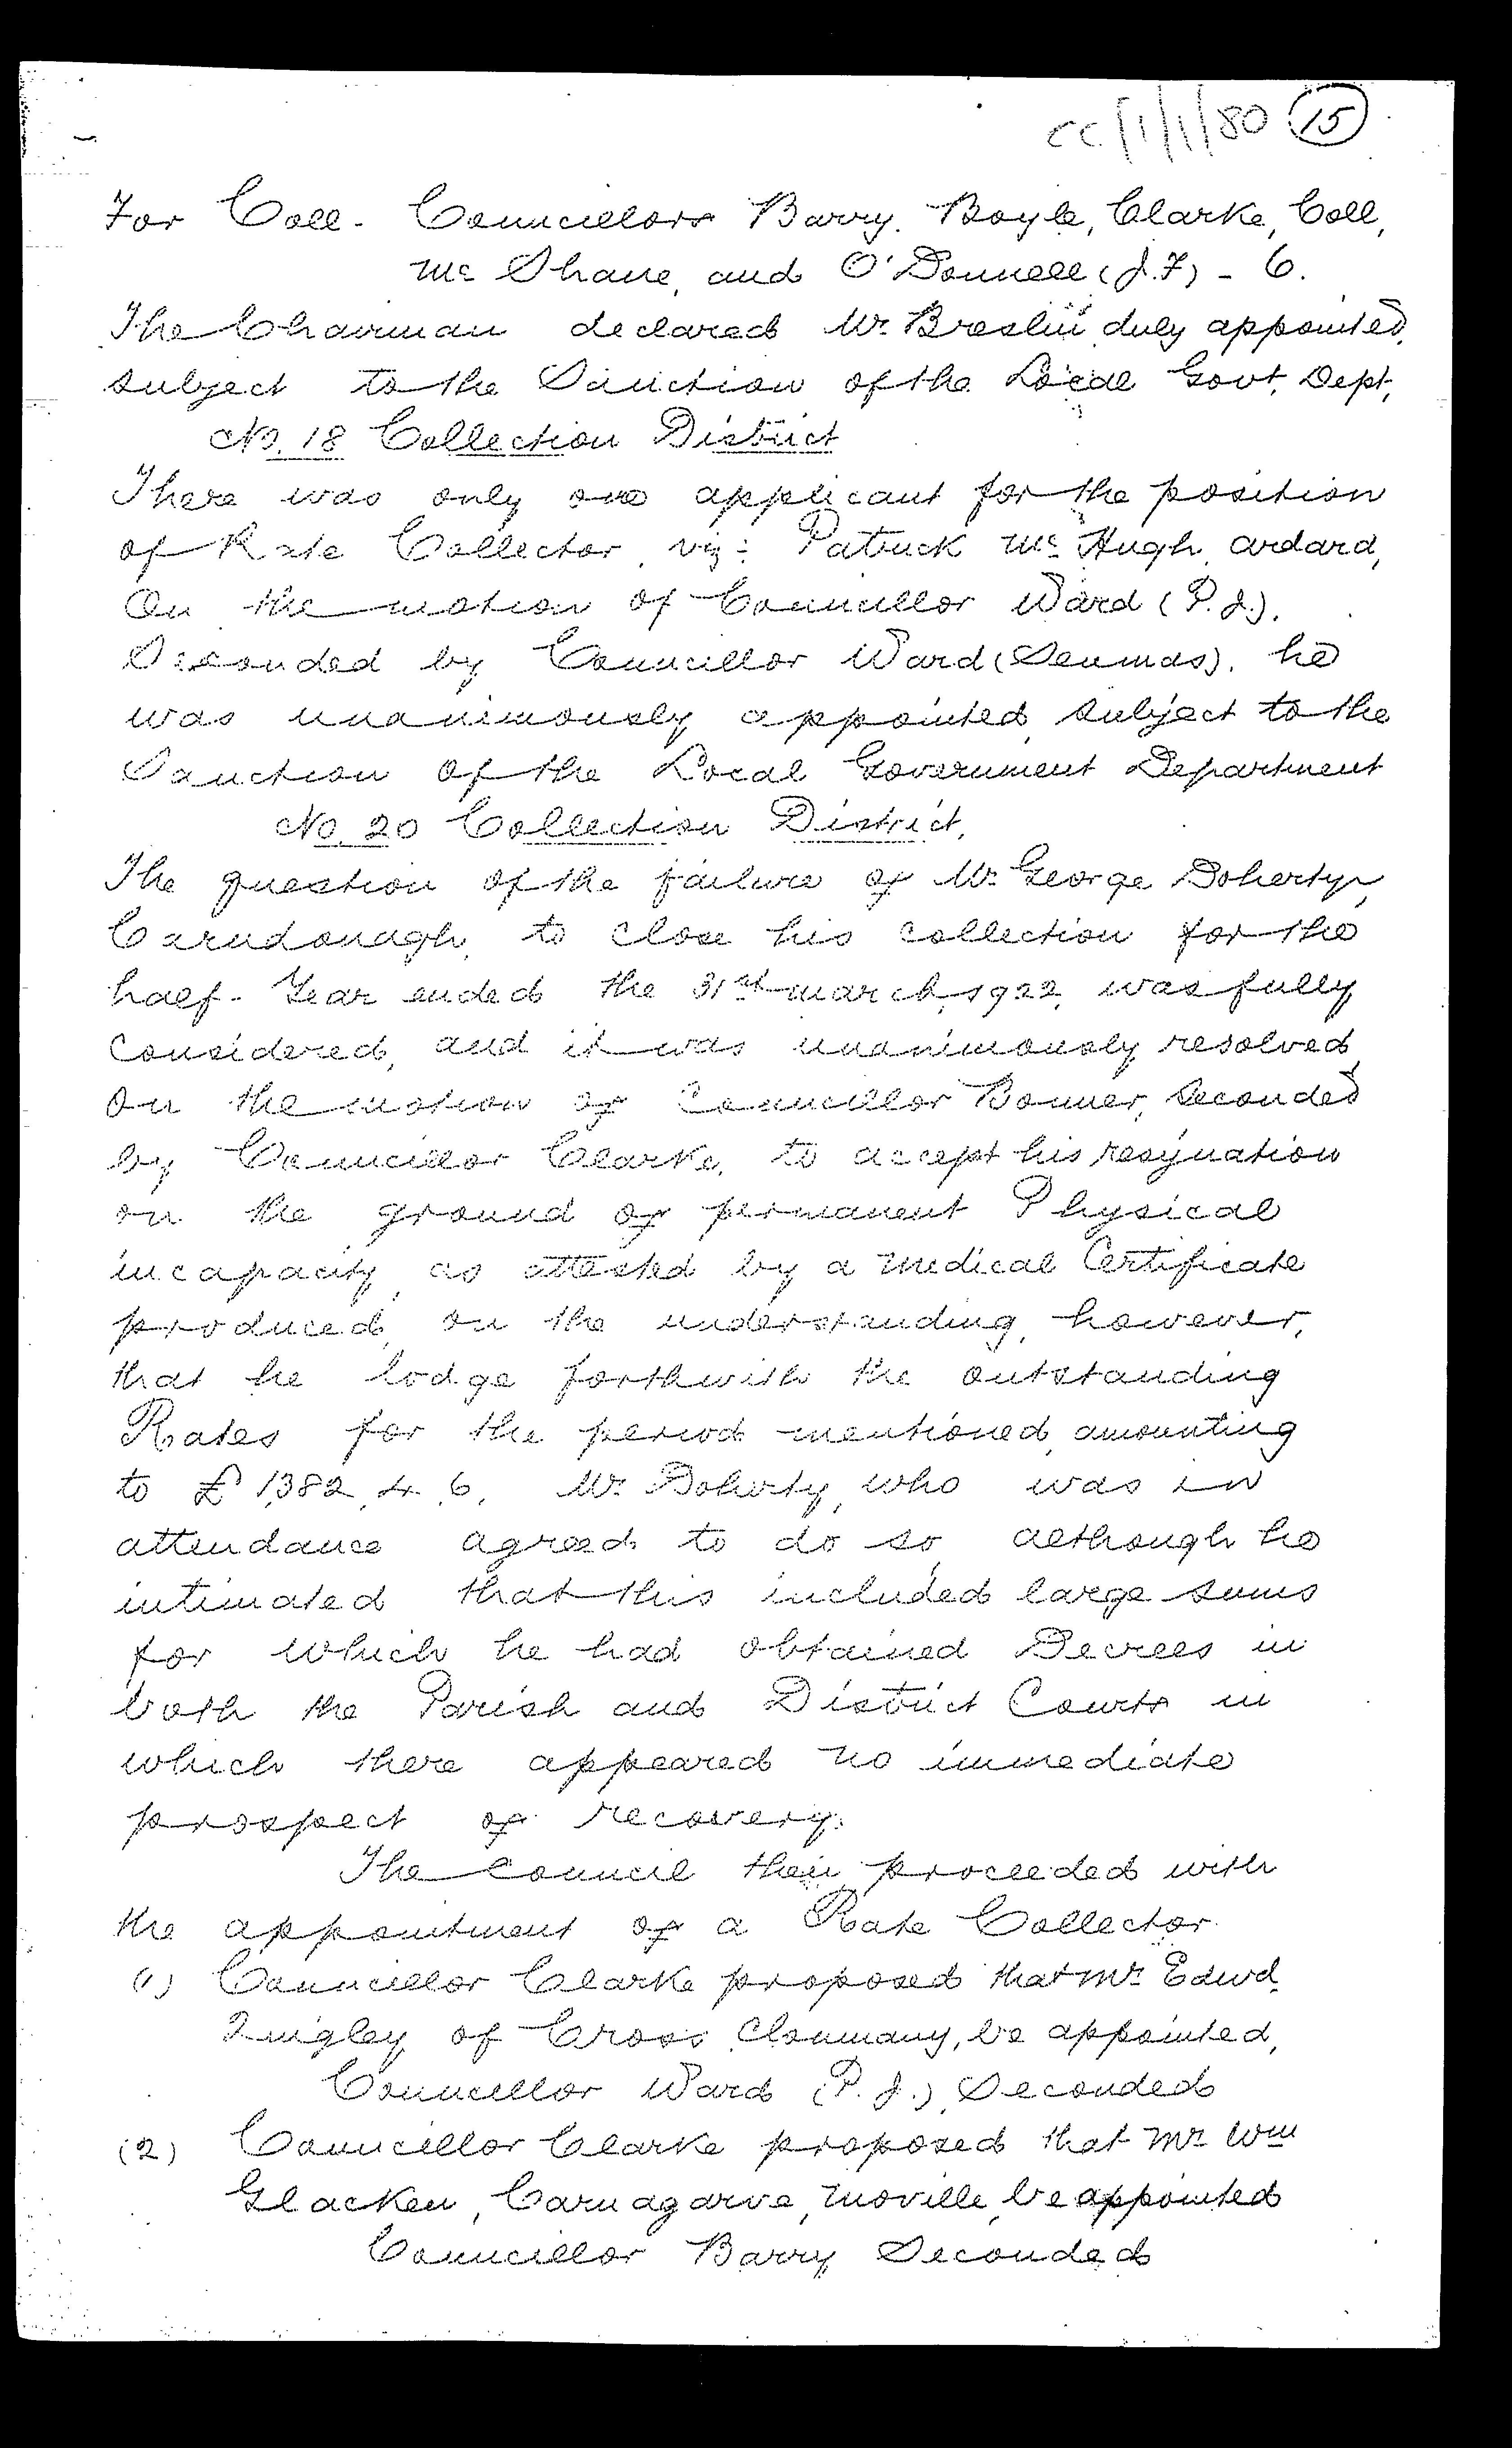 cc/1/1/80 15
For Coll - Councillors Barry, Boyle, Clarke, Coll,
Mc Shane, and O'Donnell (J.F) - 6.
The Chairman declared Mr. Breslin duly appointed,
subject to the Sanction of the Local Govt. Dept.
No. 18 Collection District
There was only one applicant for the position
of Rate Collector, viz: Patrick Mc Hugh, Ardara,
On the motion of Councillor Ward (P.J.).
Seconded by Councillor Ward (Seumas), he
was unanimously appointed, subject to the
Sanction of the Local Government Department
No. 20 Collection District.
The question of the failure of Mr. George Doherty,
Carndonagh, to close his collection for the
half-Year ended the 31st March, 1922, was fully
Considered, and it was unanimously resolved,
On the motion of Councillor Bonner, Seconded
by Councillor Clarke, to accept his resignation
on the ground of permanent Physical
incapacity, as attested by a Medical Certificate
produced, on the understanding, however,
that he lodge forthwith the outstanding
Rates for the period mentioned, amounting
to £1,382. 4. 6. Mr. Doherty, who was in
attendance agreed to do so, although he
intimated that this included large sums
for which he had obtained Decrees in
both the Parish and District Courts in
which there appeared no immediate
prospect of recovery.
The Council then proceeded with
the appointment of a Rate Collector.
(1) Councillor Clarke proposed that Mr. Edwd.
Quigley of Cross, Clonmany, be appointed,
Councillor Ward (P.J.), Seconded
(2) Councillor Clarke proposed that Mr. Wm
Glacken, Carnagarve, Moville, be appointed
Councillor Barry Seconded